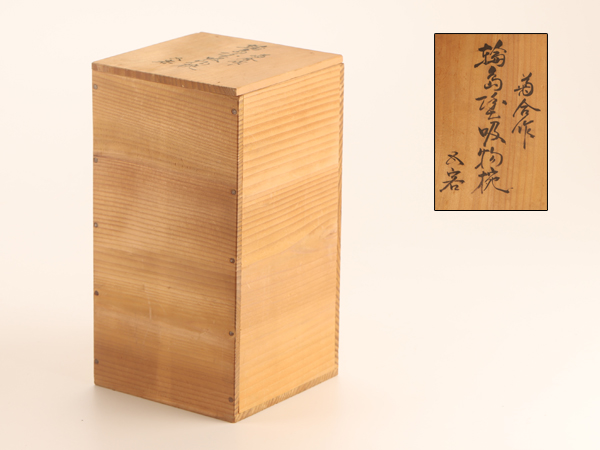 菊合作
輪島塗吸物椀
五客